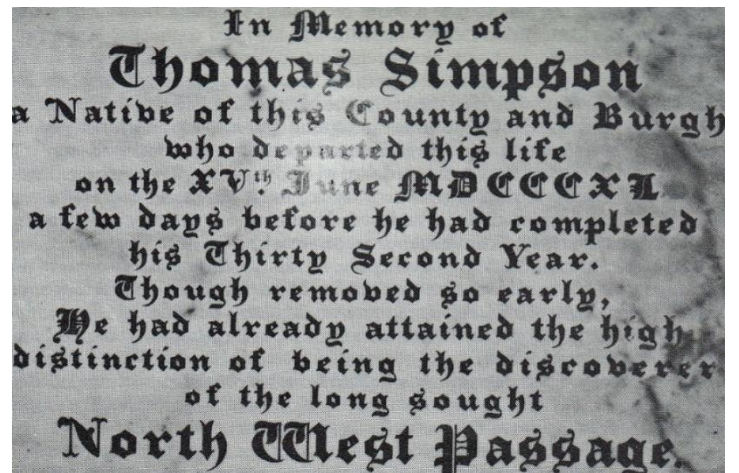 In Memory of
Thomas Simpson
a Native of this County and Burgh
who departed this life
on the XVth. June MDCCCXL
a few days before he had completed
his Thirty Second Year.
Though removed so early,
He had already attained the high
distinction of being the discoverer
of the long sought
North West Passage.